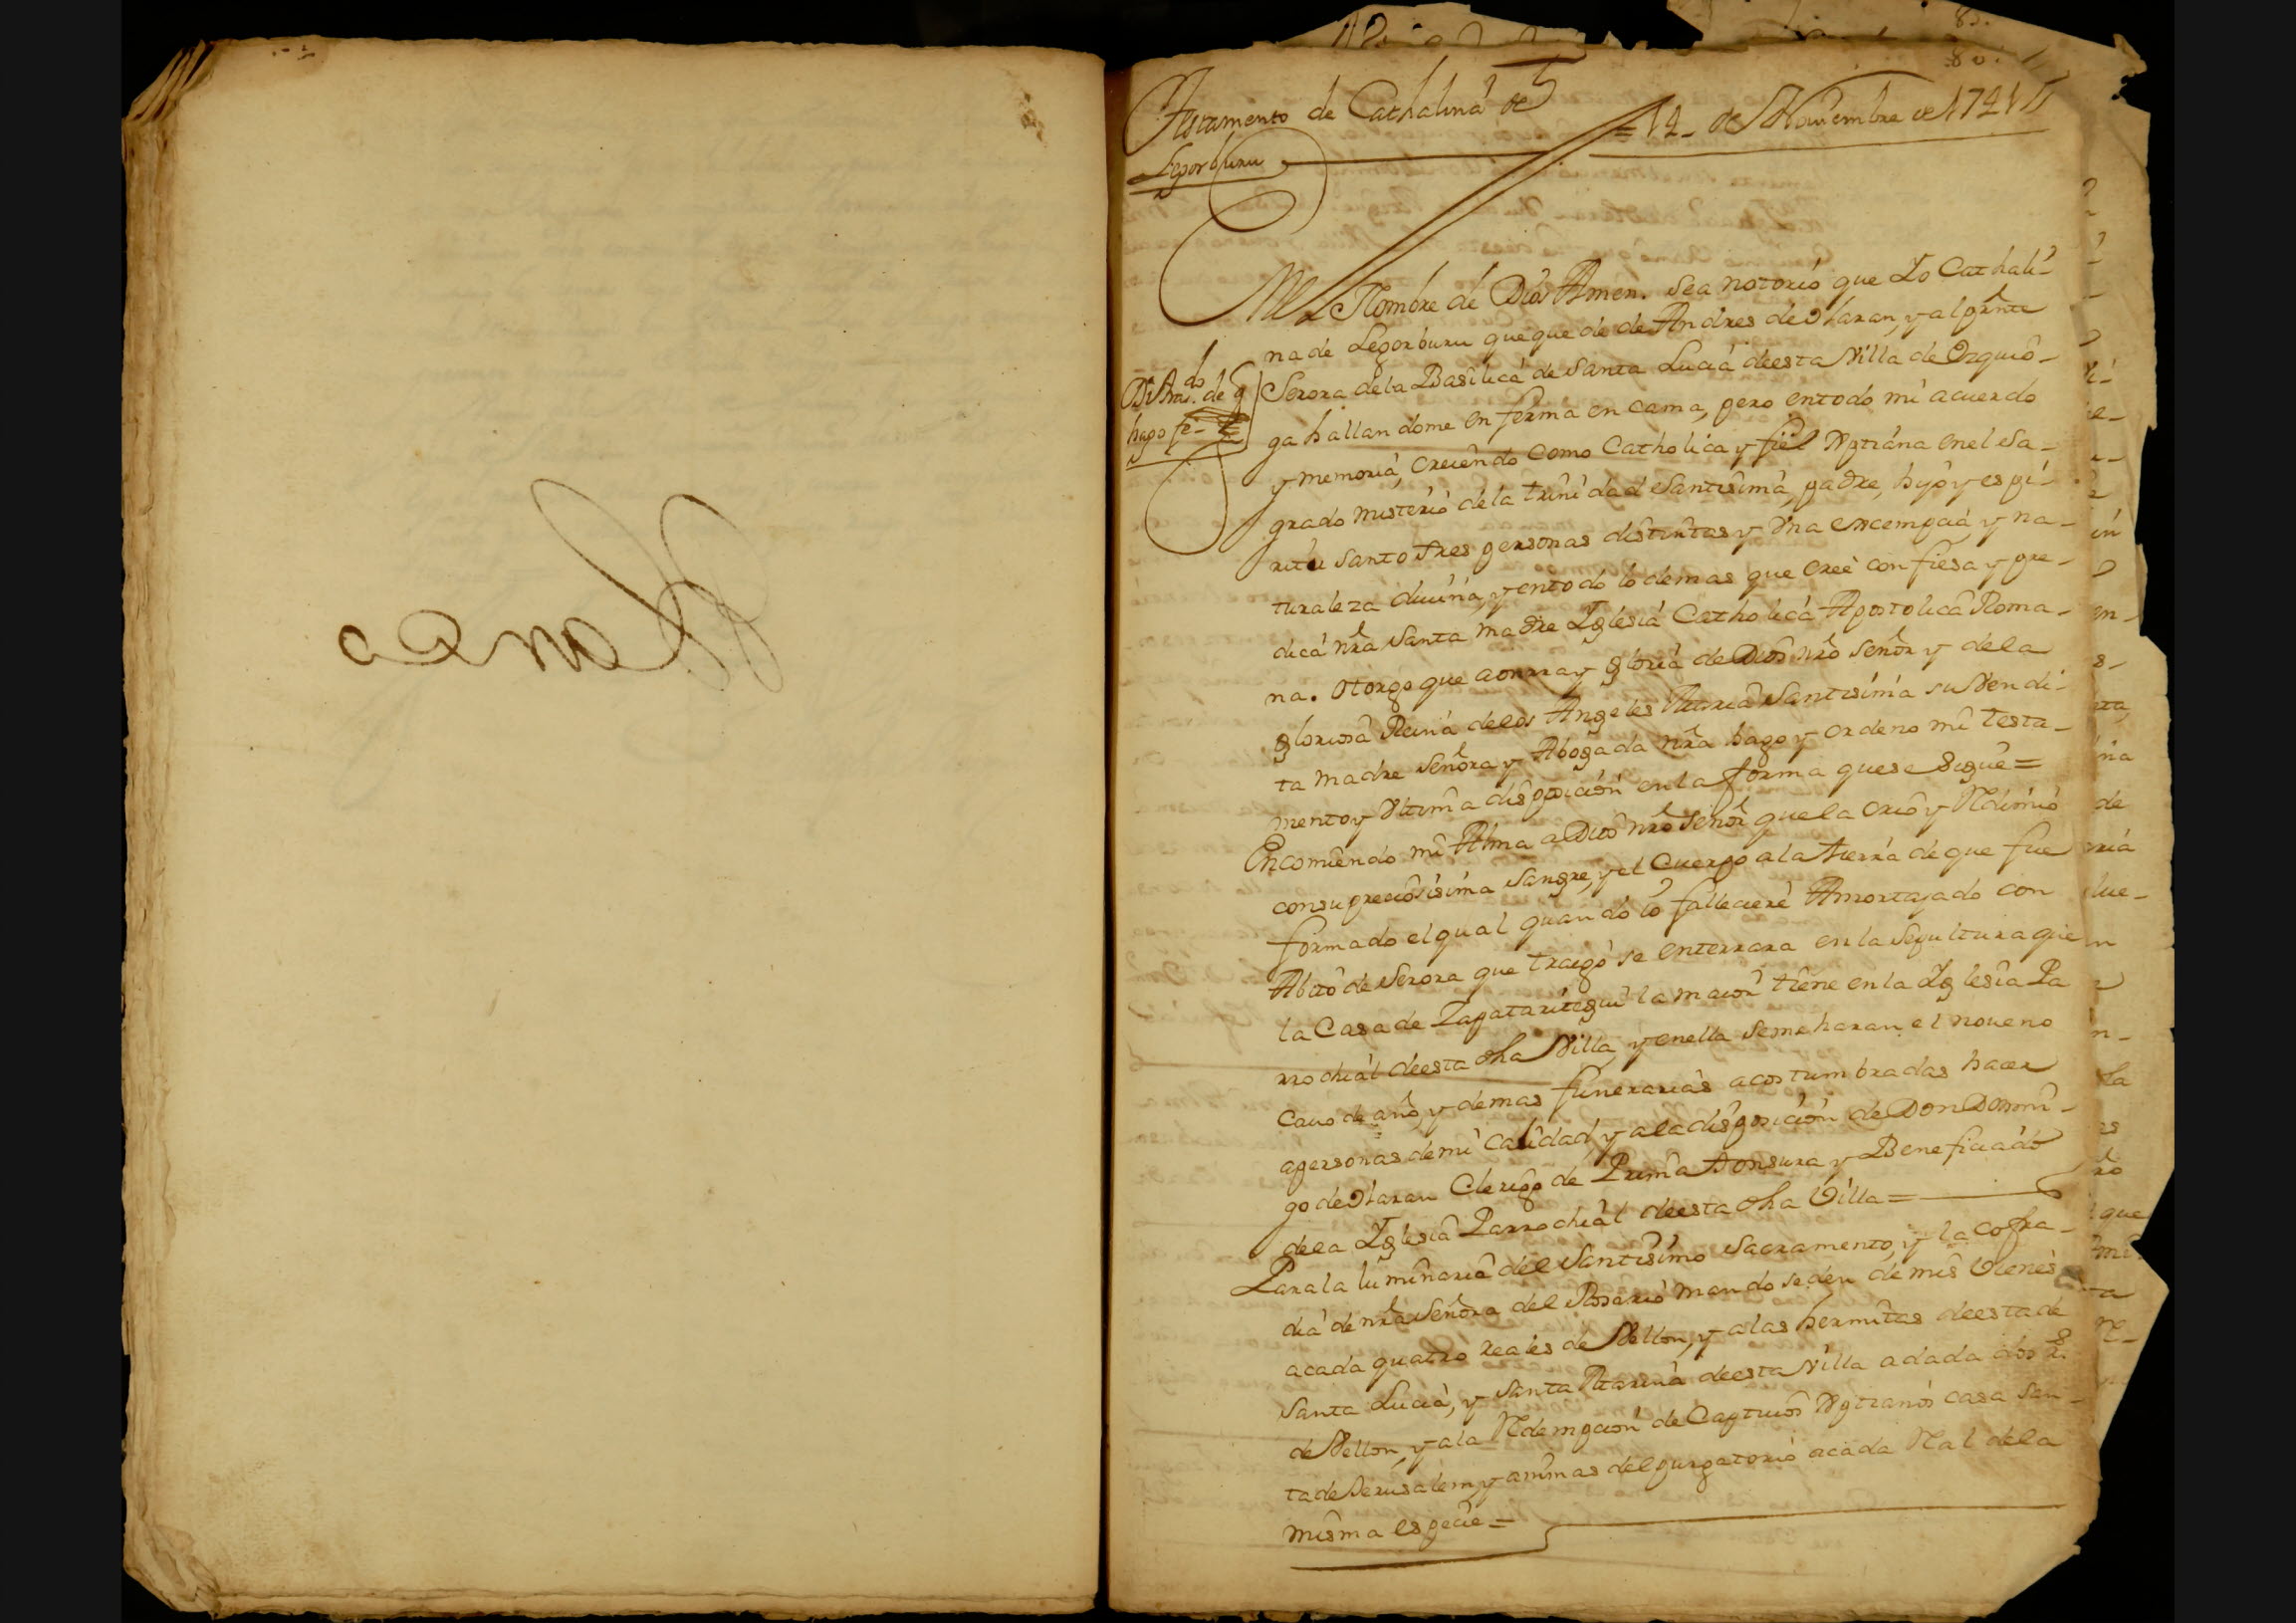 83.
80.
Testamento de Cathalina de
Legorburu
= 14 – de Nouiembre de 1741 //
Di tras.do de q
hago fe –
En el Nombre de Dios Amen. Sea notorio que Yo Cathali-
na de Legorburu que que de de Andres de Olaran, y al pnte
Serora de la Basilica de Santa Lucia de esta Villa de Ozquio-
ga hallandome enferma en cama, pero en todo mi acuerdo
y memoria, creiendo como Catholica y fiel Xptiana en el Sa-
grado misterio de la trinidad Santisima, padre, hijo y espi-
ritu Santo tres personas distintas y Vna exempcia y na-
turaleza diuina, y en todo lo demas que cree confiesa y pre-
dica nra Santa madre Yglesia Catholica Apostolica Roma-
na. Otorgo que a onrra y gloria de Dios nro Señor y de la
gloriosa Reina de los Angeles Maria Santisima su Vendi-
ta madre Señora y Abogada nra hago y ordeno mi testa-
mento y Vltima disposicion en la forma que se sigue =
Encomiendo mi Alma a Dios nro Señor que la crio y Redimio
con su preciosisima Sangre, y el Cuerpo a la tierra de que fue
formado el qual quando Yo falleciere Amortajado con
Abito de Serora que traigo se enterrara en la Sepultura que
la Casa de Zapataritegui la maior tiene en la Yglesia Pa
rrochial de esta dha Villa, y en ella se me haran el noueno
cauo de año, y demas funerarias acostumbradas hacer
a personas de mi calidad, y a la disposicion de Don Domin-
go de Olaran Clerigo de Prima tonsura y Beneficiado
de la Yglesia Parrochial de esta dha Villa =
Para la luminaria del Santisimo Sacramento, y la cofra-
dia de nra Señora del Rosario mando se den de mis Vienes
a cada quatro reales de Vellon, y a las hermitas de esta de
Santa Lucia, y Santa Marina de esta Villa a dada dos Rs.
de Vellon, y a la Redempcion de Captiuos Xptianos casa San-
ta de Jerusalem y animas del purgatorio a cada Real de la
misma especie =